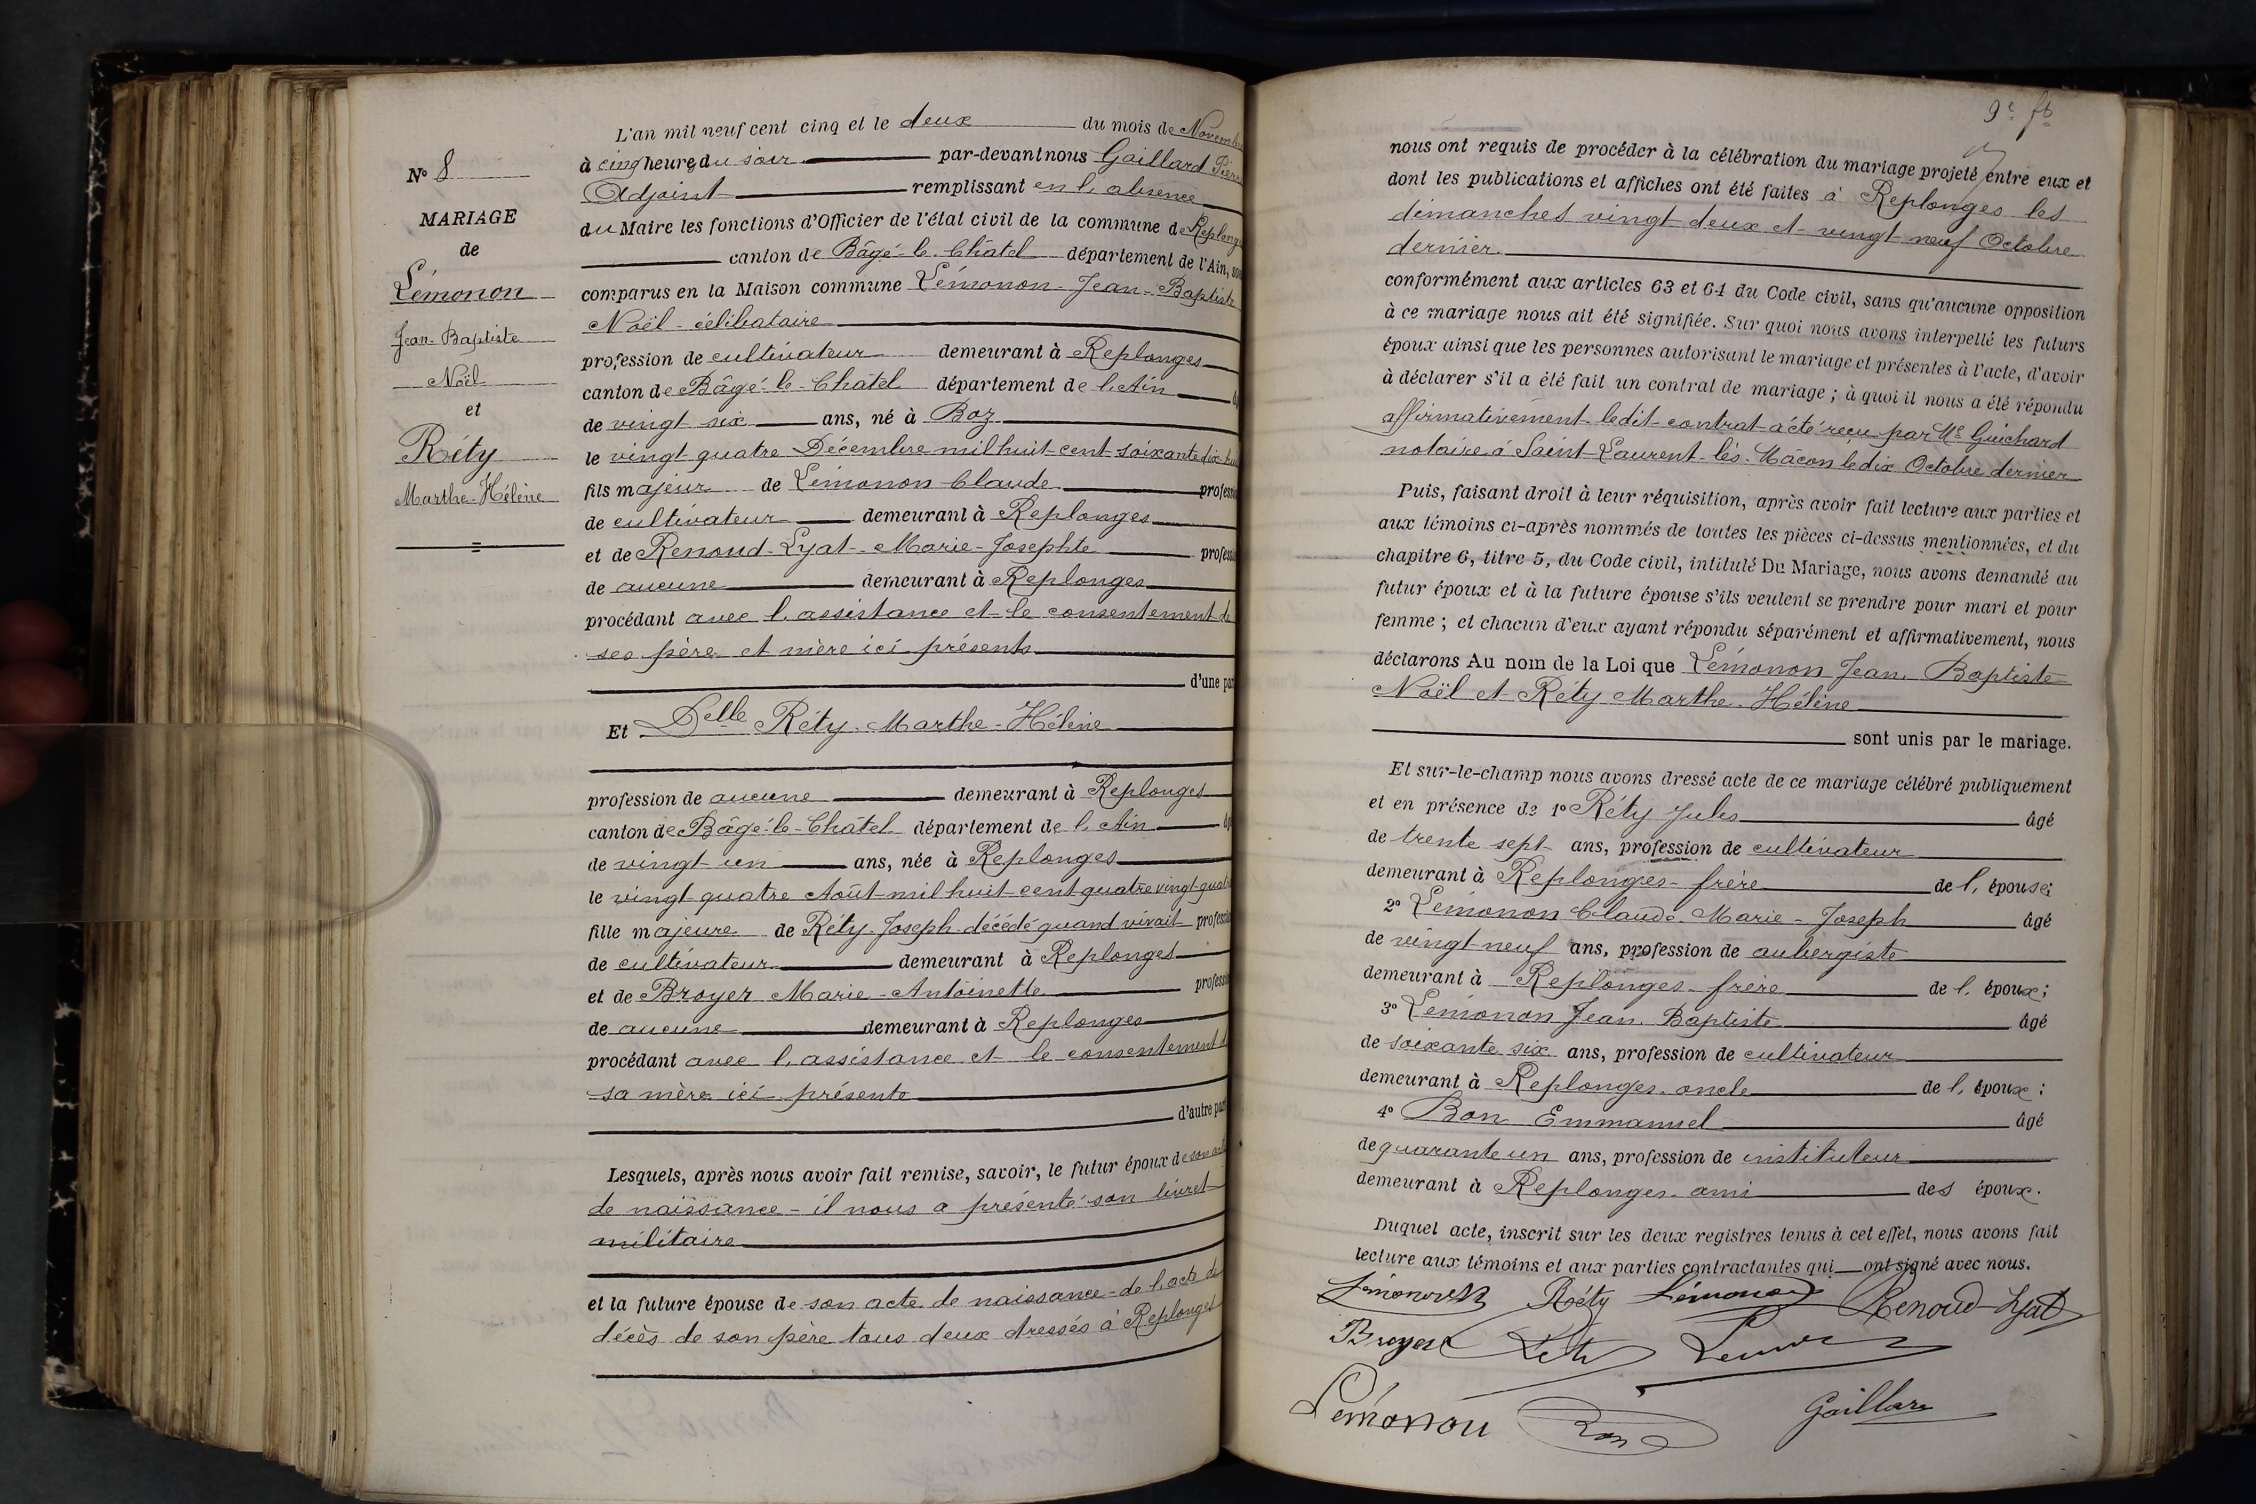 N° 8
MARIAGE
de
Lémonon
Jean-Baptiste
Noël
et
Réty
Marthe-Hélène
L'an mil neuf cent cinq et le deux du mois de Novembre
à cinq heures du soir par-devant nous Gaillard Pierre
Adjoint remplissant en l'absence
du Maire les fonctions d'Officier de l'état civil de la commune de Replonges
canton de Bâgé-le-Châtel département de l'Ain, sont
comparus en la Maison commune Lémonon-Jean-Baptiste
Noël-célibataire
profession de cultivateur demeurant à Replonges
canton de Bâgé-le-Châtel département de l'Ain
de vingt six ans, né à Boz
le vingt quatre Décembre mil huit-cent-soixante dix-huit
fils majeur de Lémonon Claude profession
de cultivateur demeurant à Replonges
et de Renoud-Lyat-Marie-Josephte profession
de aucune demeurant à Replonges
procédant avec l'assistance et le consentement de
ses père et mère ici présents
d'une part
Et Delle Réty-Marthe-Hélène
profession de aucune demeurant à Replonges
canton de Bâgé-le-Châtel département de l'Ain
de vingt-un ans, née à Replonges
le vingt quatre Août mil huit cent quatre vingt-quatre
fille majeure de Réty-Joseph décédé quand vivait profession
de cultivateur demeurant à Replonges
et de Broyer Marie-Antoinette profession
de aucune demeurant à Replonges
procédant avec l'assistance et le consentement de
sa mère ici présente
d'autre part
Lesquels, après nous avoir fait remise, savoir, le futur époux de son acte
de naissance-il nous a présenté son livret
militaire
et la future épouse de son acte de naissance-de l'acte de
décès de son père tous deux dressés à Replonges
9e ft
nous ont requis de procéder à la célébration du mariage projeté entre eux et
dont les publications et affiches ont été faites à Replonges les
dimanches vingt-deux et vingt neuf Octobre
dernier
conformément aux articles 63 et 64 du Code civil, sans qu'aucune opposition
à ce mariage nous ait été signifiée. Sur quoi nous avons interpellé les futurs
époux ainsi que les personnes autorisant le mariage et présentes à l'acte, d'avoir
à déclarer s'il a été fait un contrat de mariage ; à quoi il nous a été répondu
affirmativement-ledit-contrat a été reçu par Me Guichard
notaire à Saint-Laurent-lès-Mâcon le dix Octobre dernier
Puis, faisant droit à leur réquisition, après avoir fait lecture aux parties et
aux témoins ci-après nommés de toutes les pièces ci-dessus mentionnées, et du
chapitre 6, titre 5, du Code civil, intitulé Du Mariage, nous avons demandé au
futur époux et à la future épouse s'ils veulent se prendre pour mari et pour
femme ; et chacun d'eux ayant répondu séparément et affirmativement, nous
déclarons Au nom de la Loi que Lémonon Jean-Baptiste
Noël et Réty Marthe-Hélène
sont unis par le mariage.
Et sur-le-champ nous avons dressé acte de ce mariage célébré publiquement
et en présence de 1° Réty Jules âgé
de trente sept ans, profession de cultivateur
demeurant à Replonges-frère de l'épouse;
2° Lémonon Claude-Marie-Joseph âgé
de vingt neuf ans, profession de aubergiste
demeurant à Replonges-frère de l'époux;
3° Lémonon Jean-Baptiste âgé
de soixante six ans, profession de cultivateur
demeurant à Replonges-oncle de l'époux:
4° Bon Emmanuel âgé
de quarante un ans, profession de instituteur
demeurant à Replonges-ami des époux.
Duquel acte, inscrit sur les deux registres tenus à cet effet, nous avons fait
lecture aux témoins et aux parties contractantes qui ont signé avec nous.
Lémonon Réty Lémonon Renoud-Lyat
Broyer Réty
Lémonon Bon Gaillard